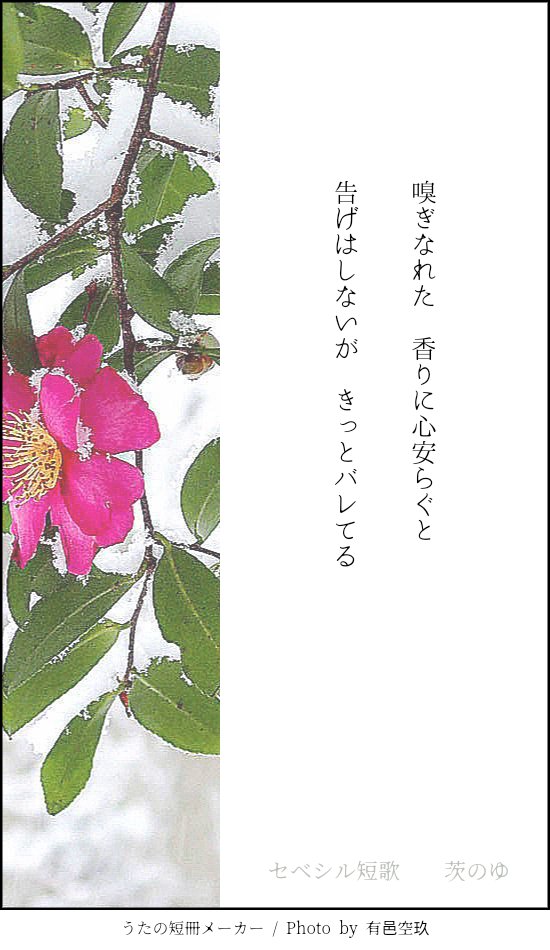 嗅ぎなれた　香りに心安らぐと
告げはしないが　きっとバレてる
セベシル短歌　　茨のゆ
うたの短冊メーカー / Photo by 有邑空玖